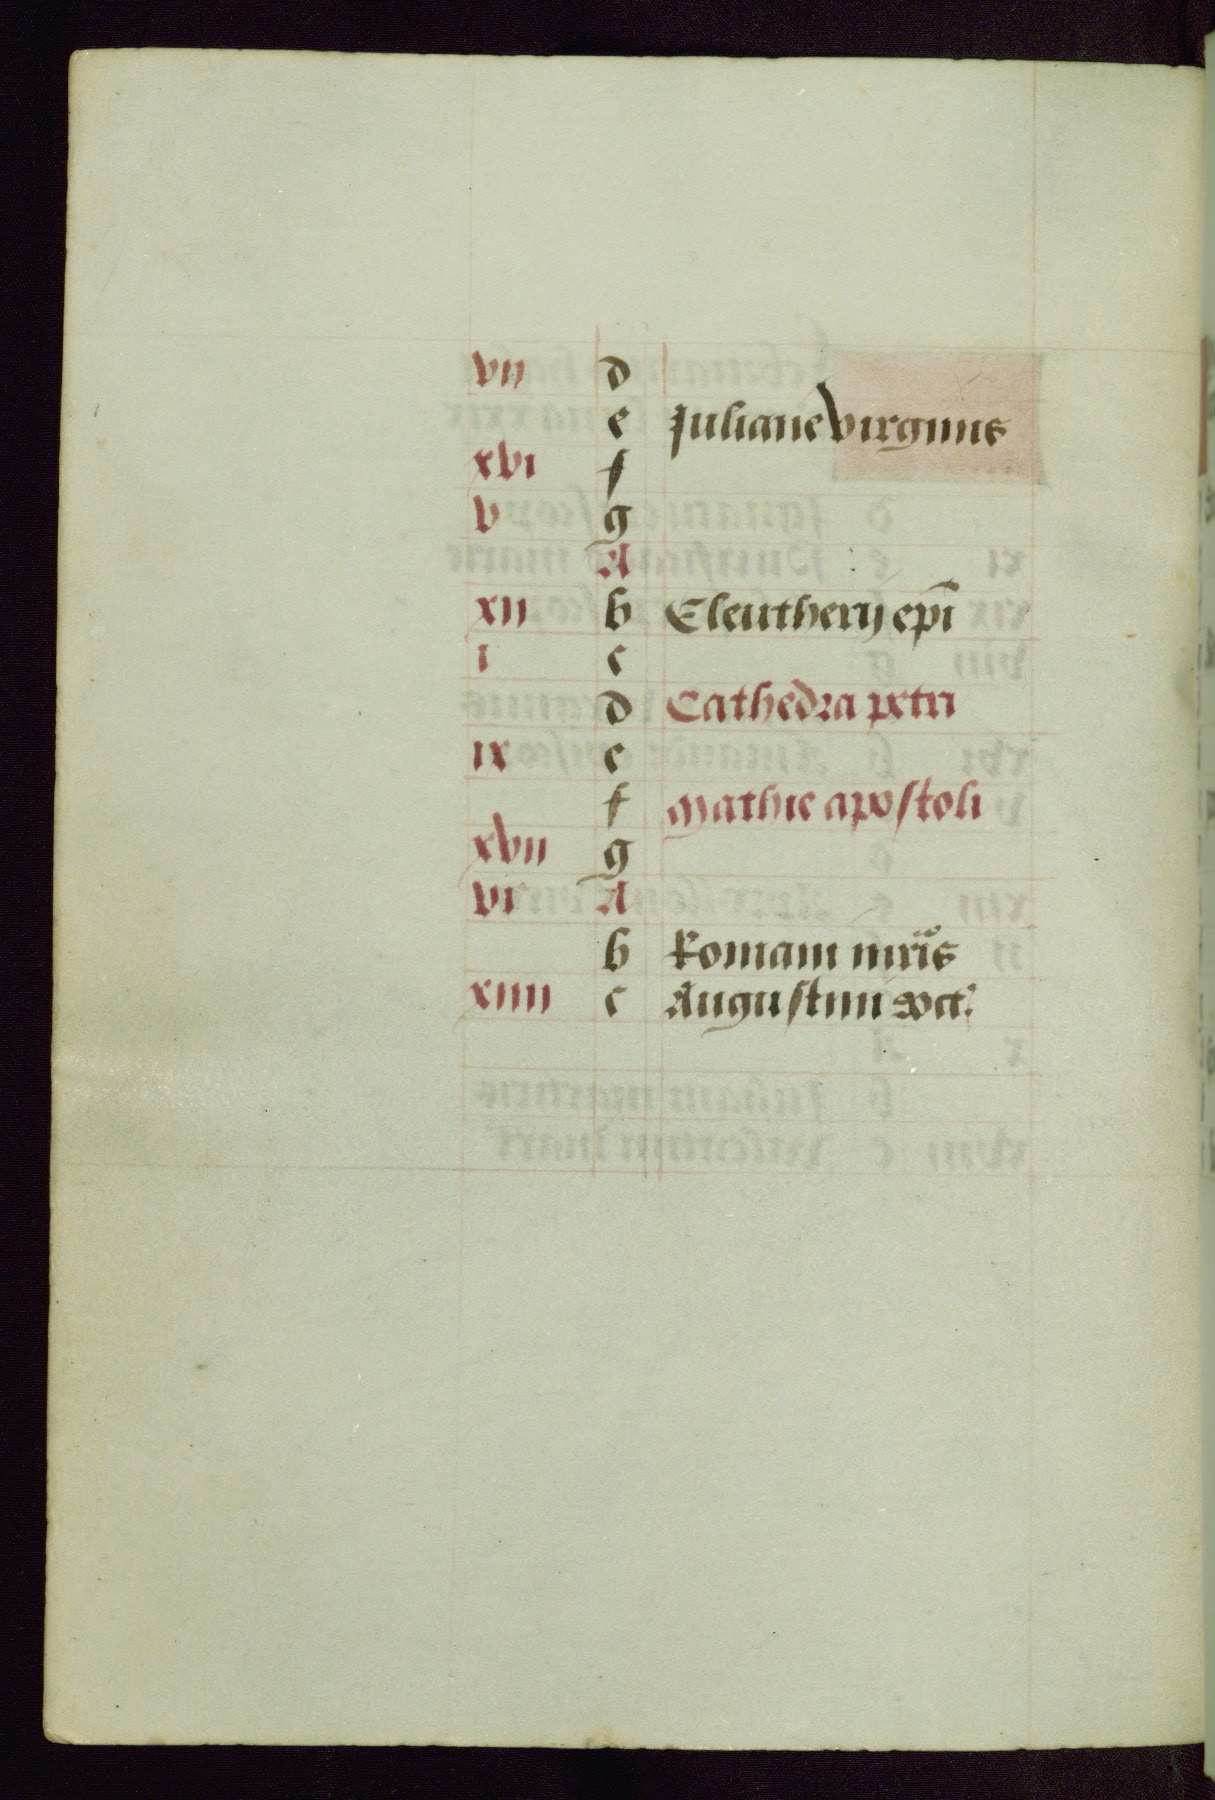 vii d
e Juliane virginis
xvi f
v g
A
xii b Eleutherij epi
i c
d Cathedra petri
ix e
f Mathie apostoli
xvii g
vi A
b Romani mris
xiiii c Augustini